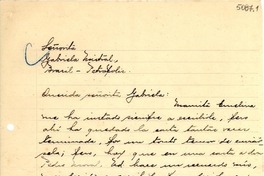 5087.1
Señorita
Gabriela Mistral,
Brasil - Petrópolis
Querida señorita Gabriela:
Mamita Emelina
me ha instado siempre a escribirle, pero
ahí ha quedado la carta tantas veces
terminada, por un tonto temor de enviár
sela; pero hoy que en una carta a don
Pedro Ud. hace un recuerdo mío,